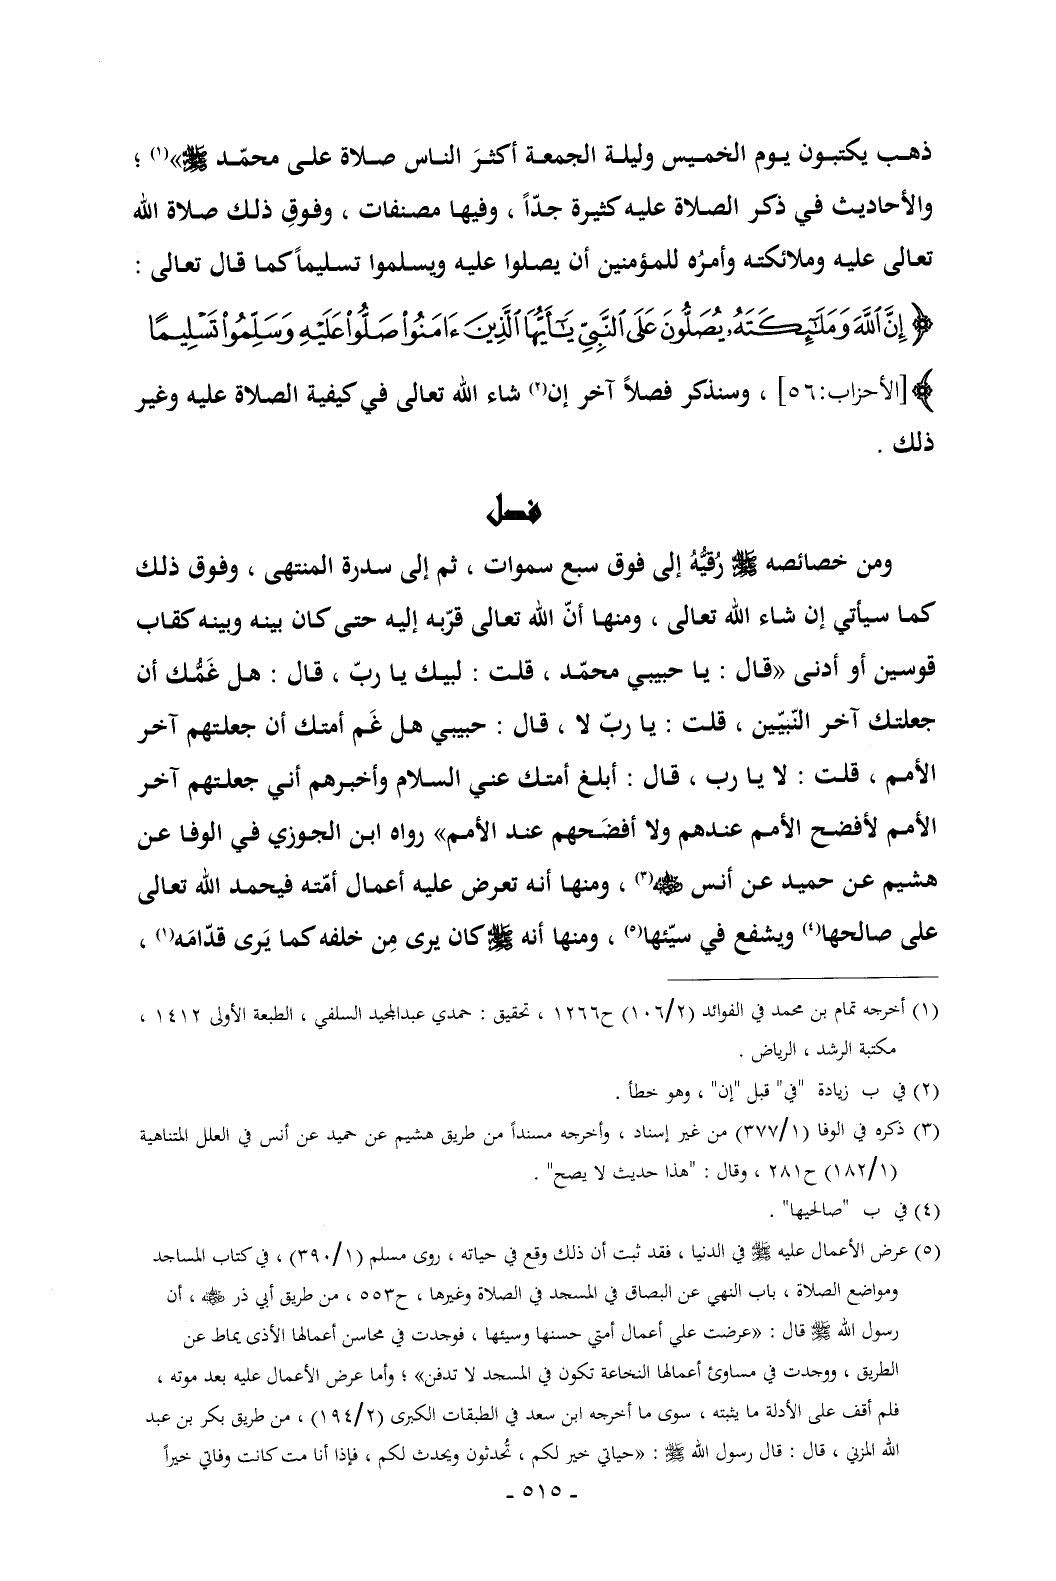 ذهب يكتبون يوم الخميس وليلة الجمعة أكثرَ الناس صلاة على محمّد ﷺ»(١) ؛
والأحاديث في ذكر الصلاة عليه كثيرة جدّاً ، وفيها مصنفات ، وفوق ذلك صلاة الله
تعالى عليه وملائكته وأمرُه للمؤمنين أن يصلوا عليه ويسلموا تسليماً كما قال تعالى :
﴿ إِنَّ ٱللَّهَ وَمَلَٰٓئِكَتَهُۥ يُصَلُّونَ عَلَى ٱلنَّبِيِّ يَٰٓأَيُّهَا ٱلَّذِينَ ءَامَنُوا۟ صَلُّوا۟ عَلَيْهِ وَسَلِّمُوا۟ تَسْلِيمًا
﴾ [الأحزاب:٥٦] ، وسنذكر فصلاً آخر إن(٢) شاء الله تعالى في كيفية الصلاة عليه وغير
ذلك .
فصل
ومن خصائصه ﷺ رُقيُّهُ إلى فوق سبع سموات ، ثم إلى سدرة المنتهى ، وفوق ذلك
كما سيأتي إن شاء الله تعالى ، ومنها أنّ الله تعالى قرّبه إليه حتى كان بينه وبينه كقاب
قوسين أو أدنى «قال : يا حبيبي محمّد ، قلت : لبيك يا ربّ ، قال : هل غَمُّك أن
جعلتك آخر النّبيّين ، قلت : يا ربّ لا ، قال : حبيبي هل غَم أمتك أن جعلتهم آخر
الأمم ، قلت : لا يا رب ، قال : أبلغ أمتك عني السلام وأخبرهم أني جعلتهم آخر
الأمم لأفضح الأمم عندهم ولا أفضَحهم عند الأمم» رواه ابن الجوزي في الوفا عن
هشيم عن حميد عن أنس ﵁(٣) ، ومنها أنه تعرض عليه أعمال أمّته فيحمد الله تعالى
على صالحها(٤) ويشفع في سيّئها(٥) ، ومنها أنه ﷺ كان يرى مِن خلفه كما يَرى قدّامَه(١) ،
(١) أخرجه تمام بن محمد في الفوائد (١٠٦/٢) ح١٢٦٦ ، تحقيق : حمدي عبدالمجيد السلفي ، الطبعة الأولى ١٤١٢ ،
مكتبة الرشد ، الرياض .
(٢) في ب زيادة "في" قبل "إن" ، وهو خطأ .
(٣) ذكره في الوفا (٣٧٧/١) من غير إسناد ، وأخرجه مسنداً من طريق هشيم عن حميد عن أنس في العلل المتناهية
(١٨٢/١) ح٢٨١ ، وقال : "هذا حديث لا يصح" .
(٤) في ب "صالحيها" .
(٥) عرض الأعمال عليه ﷺ في الدنيا ، فقد ثبت أن ذلك وقع في حياته ، روى مسلم (٣٩٠/١) ، في كتاب المساجد
ومواضع الصلاة ، باب النهي عن البصاق في المسجد في الصلاة وغيرها ، ح٥٥٣ ، من طريق أبي ذر ﵁ ، أن
رسول الله ﷺ قال : «عرضت علي أعمال أمتي حسنها وسيئها ، فوجدت في محاسن أعمالها الأذى يماط عن
الطريق ، ووجدت في مساوئ أعمالها النخاعة تكون في المسجد لا تدفن» ؛ وأما عرض الأعمال عليه بعد موته ،
فلم أقف على الأدلة ما يثبته ، سوى ما أخرجه ابن سعد في الطبقات الكبرى (١٩٤/٢) ، من طريق بكر بن عبد
الله المزني ، قال : قال رسول الله ﷺ : «حياتي خير لكم ، تُحدثون ويحدث لكم ، فإذا أنا مت كانت وفاتي خيراً
- ٥١٥ -